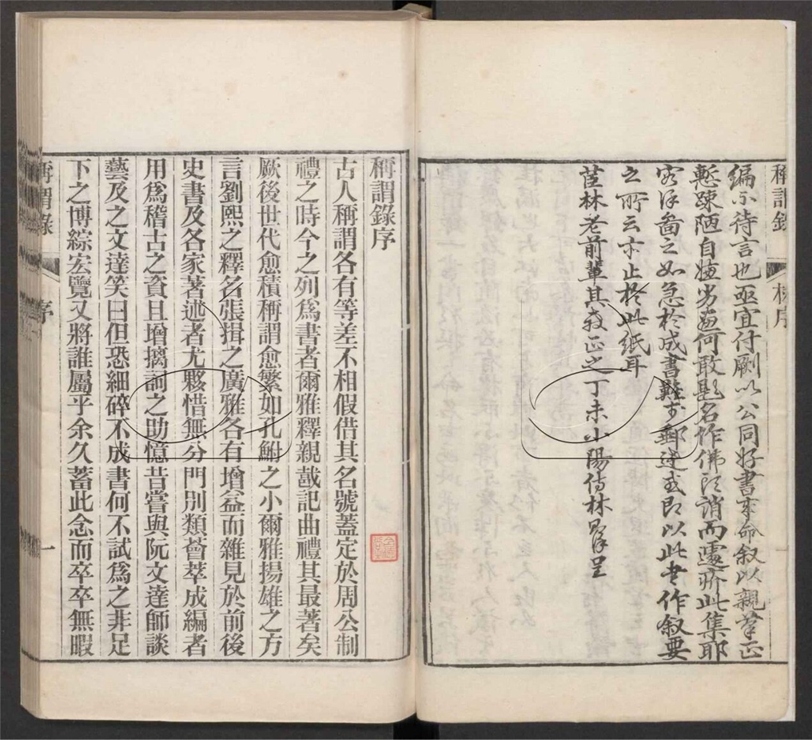 稱謂錄 林序
編不待言也亟宜付劂以公同好書來命叙以親筆正
慙踈陋自 何敢 名作佛頂誚而遽疥此集耶
容詳啚之如急於成書難於郵遞或即以此書作叙要
之所云亦止於此紙耳
茝林老前輩其教正之丁未小陽侍林則徐呈
稱謂錄序
古人稱謂各有等差不相假借其名號蓋定於周公制
禮之時今之列爲書者爾雅釋親戴記曲禮其最著矣
厥後世代愈積稱謂愈繁如孔鮒之小爾雅揚雄之方
言劉熙之釋名張揖之廣雅各有增益而雜見於前後
史書及各家著述者尤夥惜無分門別類薈萃成編者
用爲稽古之資且增摛詞之助憶昔嘗與阮文達師談
藝及之文達笑曰但恐細碎不成書何不試爲之非足
下之博綜宏覽又將誰屬乎余久蓄此念而卒卒無暇
稱謂錄 序 一